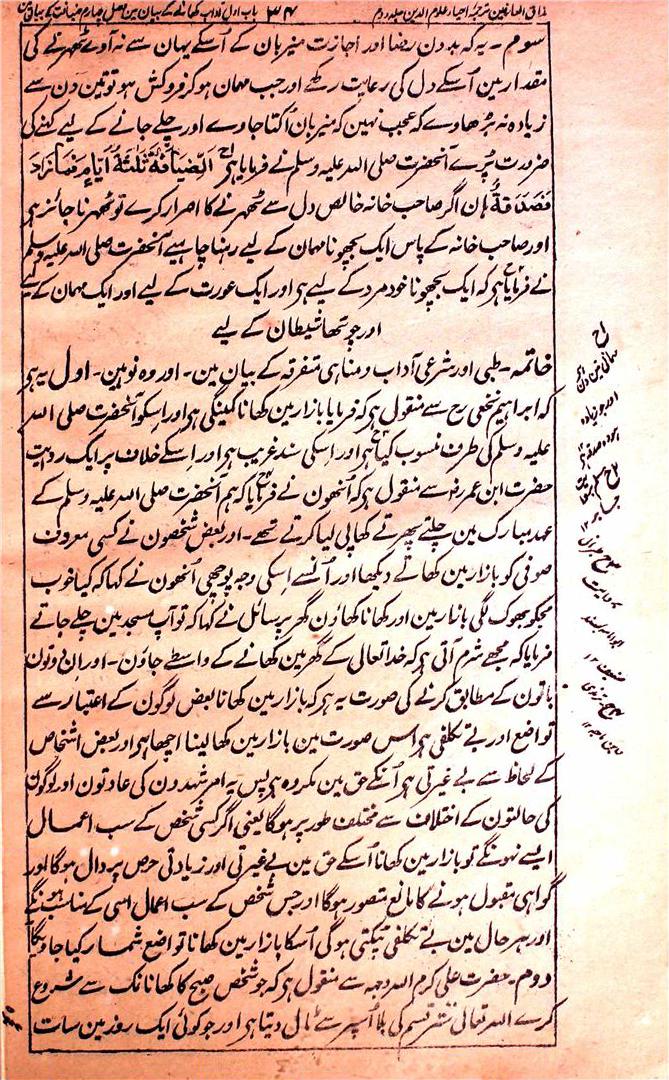 مذاق العارفین ترجمہ احیاء علوم الدین جلد دوم ۳۴ باب اول آداب کھانے کے بیان مین فصل چہارم ضیافت کے بیان مین
سوم ۔ یہ کہ بدون رضا اور اجازت میزبان کے اُسکے یہان سے نہ آوے ٹھہرنے کی
مقدار مین اُسکے دل کی رعایت رکھے اور جب مہمان ہو کر فروکش ہو تو تین دن سے
زیادہ نہ بڑھاوے کہ عجب نہین کہ میزبان اُکتا جاوے اور چلے جانے کے لیے کہنے کی
ضرورت پڑے آنحضرت صلی اللہ علیہ وسلم نے فرمایا ہی اَلضِّیَافَۃُ ثَلٰثَۃُ اَیَّامٍ فَمَا زَادَ
فَصَدَقَۃٌ ہان اگر صاحب خانہ خالص دل سے ٹھہرنے کا اصرار کرے تو ٹھہرنا جائز ہی
اور صاحب خانہ کے پاس ایک بچھونا مہمان کے لیے رہنا چاہیے آنحضرت صلی اللہ علیہ وسلم
نے فرمایا ہی کہ ایک بچھونا خود مرد کے لیے ہی اور ایک عورت کے لیے اور ایک مہمان کے لیے
اور چوتھا شیطان کے لیے
خاتمہ ۔ طبی اور شرعی آداب و مناہی متفرقہ کے بیان مین ۔ اور وہ نو ہین ۔ اول یہ ہی
کہ ابراہیم نخعی رح سے منقول ہی کہ فرمایا بازار مین کھانا کمینگی ہی اور اسکو آنحضرت صلی اللہ
علیہ وسلم کی طرف منسوب کیا ہی اور اسکی سند غریب ہی اور اسکے خلاف پر ایک روایت
حضرت ابن عمر رضہ سے منقول ہی کہ اُنھون نے فرمایا کہ ہم آنحضرت صلی اللہ علیہ وسلم کے
عہد مبارک مین چلتے پھرتے کھا پی لیا کرتے تھے ۔ اور بعض شخصون نے کسی معروف
صوفی کو بازار مین کھاتے دیکھا اور اُنسے اسکی وجہ پوچھی اُنھون نے کہا کہ کیا خوب
مجکو بھوک لگی بازار مین اور کھانا کھاؤن گھر پر سائل نے کہا کہ تو آپ مسجد مین چلے جاتے
فرمایا کہ مجھے شرم آتی ہی کہ خدا تعالی کے گھر مین کھانے کے واسطے جاؤن ۔ اور ان دونون
باتون کے مطابق کرنے کی صورت یہ ہی کہ بازار مین کھانا بعض لوگون کے اعتبار سے
تواضع اور بے تکلفی ہی اس صورت مین بازار مین کھا لینا اچھا ہی اور بعض اشخاص
کے لحاظ سے بے غیرتی ہی اُنکے حق مین مکروہ ہی پس یہ امر شہرون کی عادتون اور لوگون
کی حالتون کے اختلاف سے مختلف طور پر ہوگا یعنی اگر کسی شخص کے سب اعمال
ایسے نہونگے تو بازار مین کھانا اُسکے حق مین بے غیرتی اور زیادتی حرص پر دال ہوگا اور
گواہی مقبول ہونے کا مانع متصور ہوگا اور جس شخص کے سب اعمال اسی کے مناسب ہونگے
اور ہر حال مین بے تکلفی ٹپکتی ہوگی اُسکا بازار مین کھانا تواضع شمار کیا جاویگا
دوم ۔ حضرت علی کرم اللہ وجہہ سے منقول ہی کہ جو شخص صبح کا کھانا نمک سے شروع
کرے اللہ تعالی ستر قسم کی بلا اُسپر سے ٹال دیتا ہی اور جو کوئی ایک روز مین سات
مہمانی تین دن
اور جو زیادہ
ہو وہ صدقہ ہی